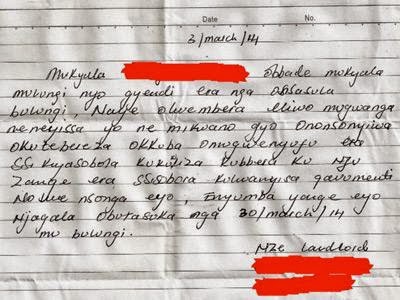 Date No.
3/march/14
Mukyala obbade mukyala
mulungi nyo gyendi era nga obasasula
bulungi, Naye olwembera eliwo mugwanga
neneyissa yo ne mikwano gyo ononsonyiwa
okutebereza okkuba omugwenyufu era
SSikyasobola kukikuza kubbera ku Nju
Zange era SSisobola kulwanyisa gavumenti
Nolwe nsonga eyo, Enyumba yange eyo
Njagala Obutasuka nga 30/march/14
mu bulungi.
Nze Landlord